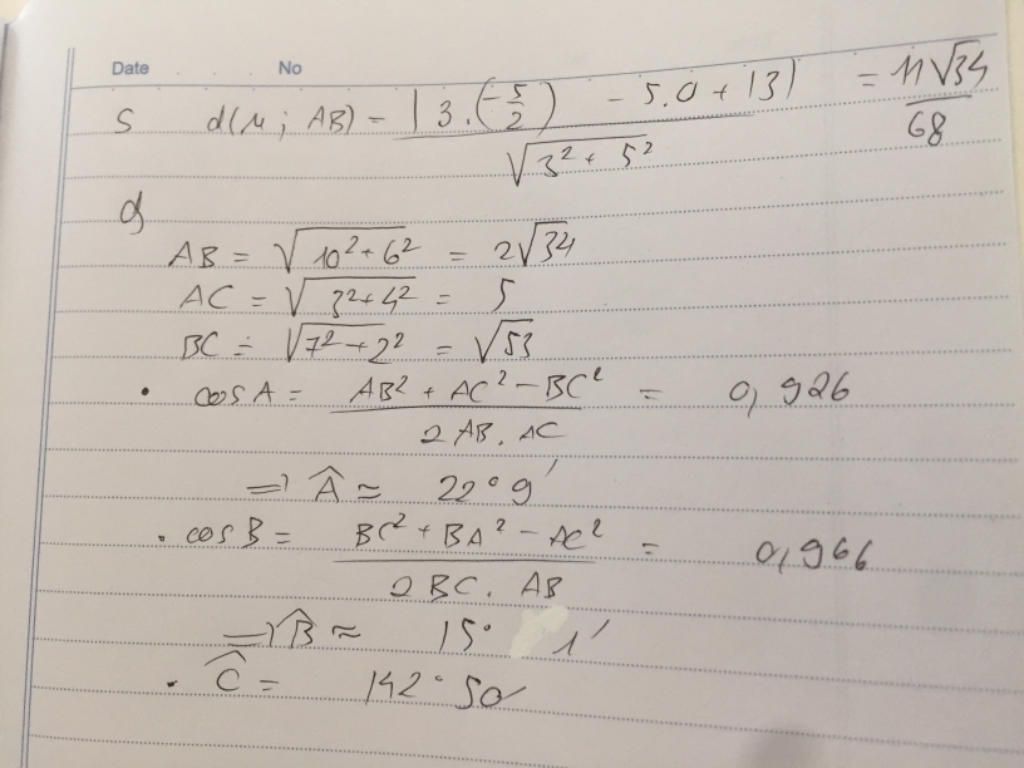 Date No
S d(M; AB) = |3.(-5/2) - 5.0 + 13| / √(3² + 5²) = 11√34 / 68
d
AB = √(10² + 6²) = 2√34
AC = √(3² + 4²) = 5
BC = √(7² + 2²) = √53
• cos A = (AB² + AC² - BC²) / (2 AB. AC) = 0,926
=> Â ≈ 22°9'
• cos B = (BC² + BA² - AC²) / (2 BC. AB) = 0,966
=> B̂ ≈ 15° 1'
• Ĉ = 142°50'